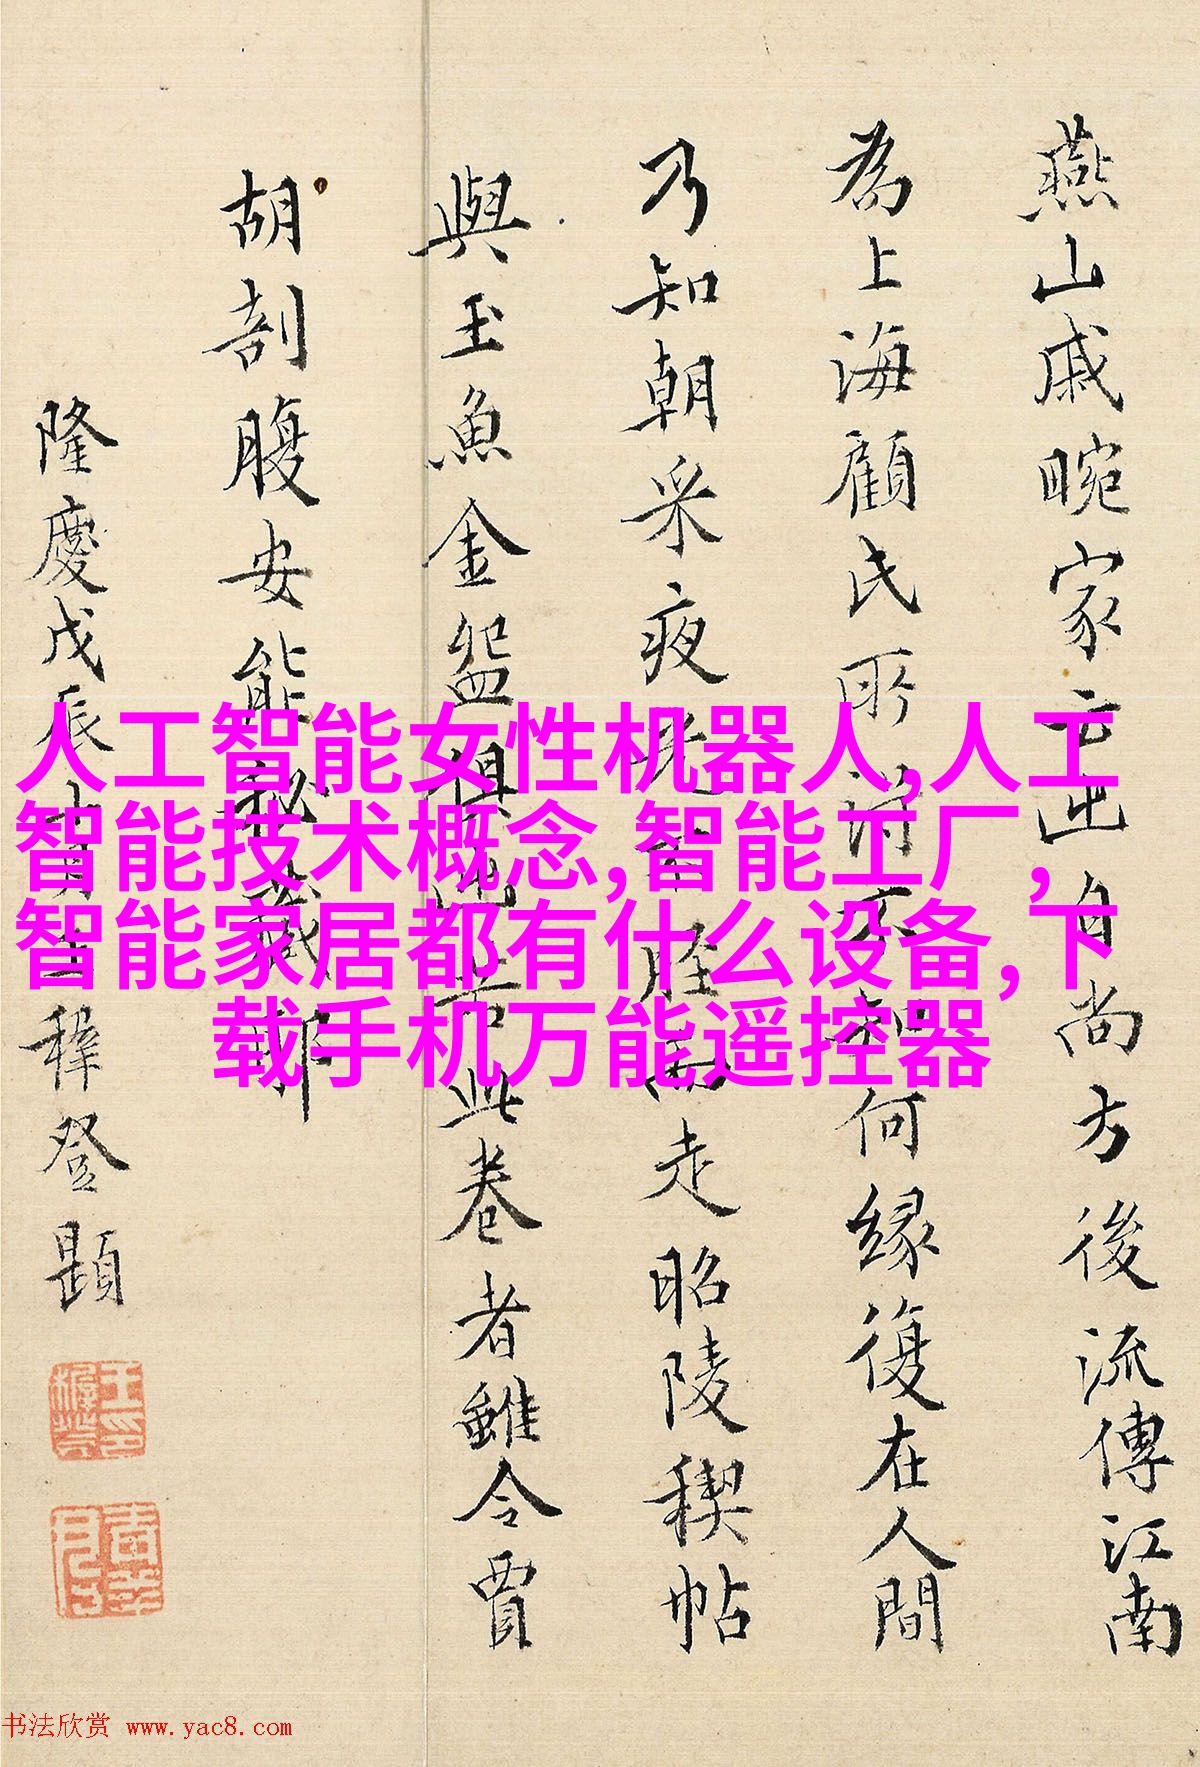 燕山戚畹家云出自尚方後流傳江南
為上海顧氏所不知何緣復在人間
乃知朝采夜光不脛而走昭陵稧帖
與玉魚金盌俱出此卷者雖令賈
胡剖腹安能秘藏耶
隆慶戊辰十月王穉登題
人工智能女性机器人,人工
智能技术概念,智能工厂,
智能家居都有什么设备,下
载手机万能遥控器
书法欣赏 www.yac8.com